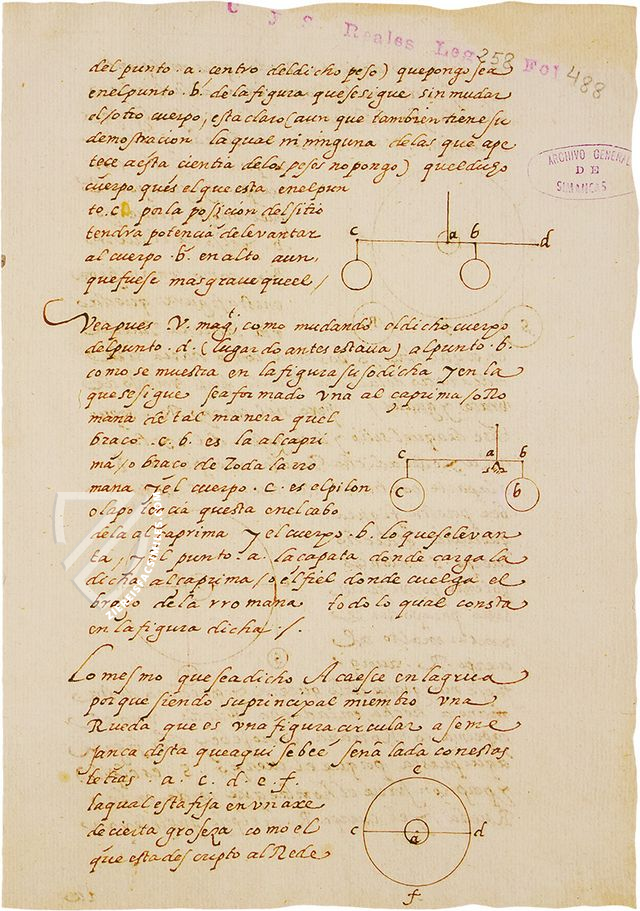 C y S Reales Leg 258 Fol 488
del punto .a. centro del dicho peso) que pongo sea
en el punto .b. de la figura que se sigue sin mudar
el sotro cuerpo, esta claro (aun que tambien tiene su
demostracion la qual ni ninguna de las que ape
tece aesta cientia de los pesos no pongo) quel dicho
cuerpo ques el que esta en el pun
to .c. por la posicion del sitio
tendra potencia de levantar
al cuerpo .b. en alto aun,
que fuese mas grave que el /
ARCHIVO GENERAL
DE
SIMANCAS
c a b d
Vea pues V. magt, como mudando el dicho cuerpo
del punto .d. (lugar do antes estava) al punto .b.
como se muestra en la figura suso dicha y en la
que se sigue sea formado vna al caprima / o Ro
mana de tal manera quel
braco .c. b. es la alcapri
ma / o braco de toda la rro
mana y el cuerpo .c. es el pilon
o la potencia questa en el cabo
de la alcaprima y el cuerpo .b. lo que se levan
ta, y el punto .a. la capata donde carga la
dicha alcaprima / o el fiel donde cuelga el
braço de la rromana todo lo qual consta
en la figura dicha ./.
c a b
c b
Lo mesmo que sea dicho Acaesce en la grua
porque siendo su principal miembro vna
Rueda que es vna figura circular a seme
janca desta que aqui se bee señalada con estas
letras a. c. d. e. f.
la qual esta fija en vn axe
de cierta groseza como el
que esta descripto al Rede
e
c a d
f